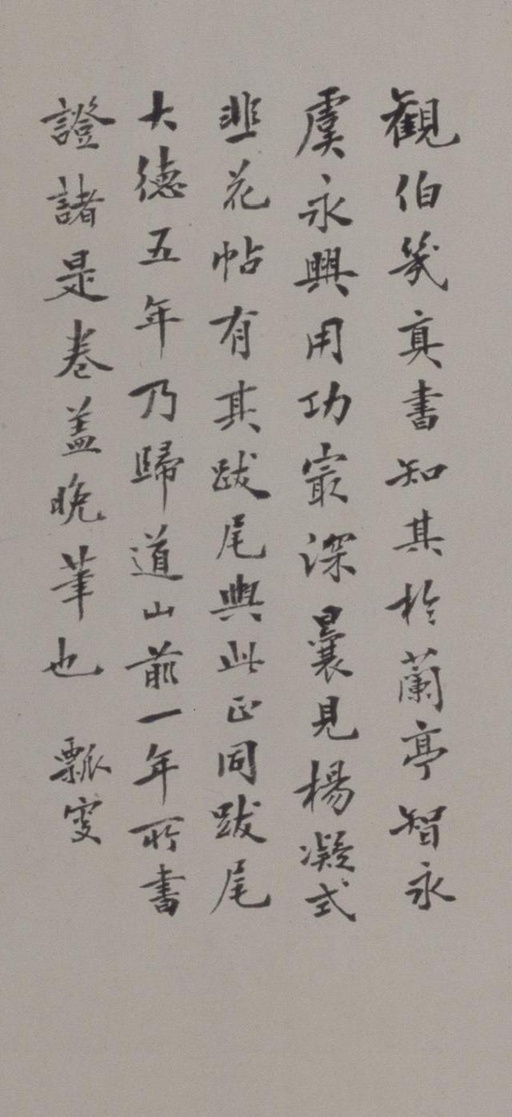 觀伯幾真書知其於蘭亭智永
虞永興用功寂深曩見楊凝式
韭花帖有其跋尾與此正同跋尾
大德五年乃歸道山前一年所書
證諸是卷盖晚筆也 瓢叟